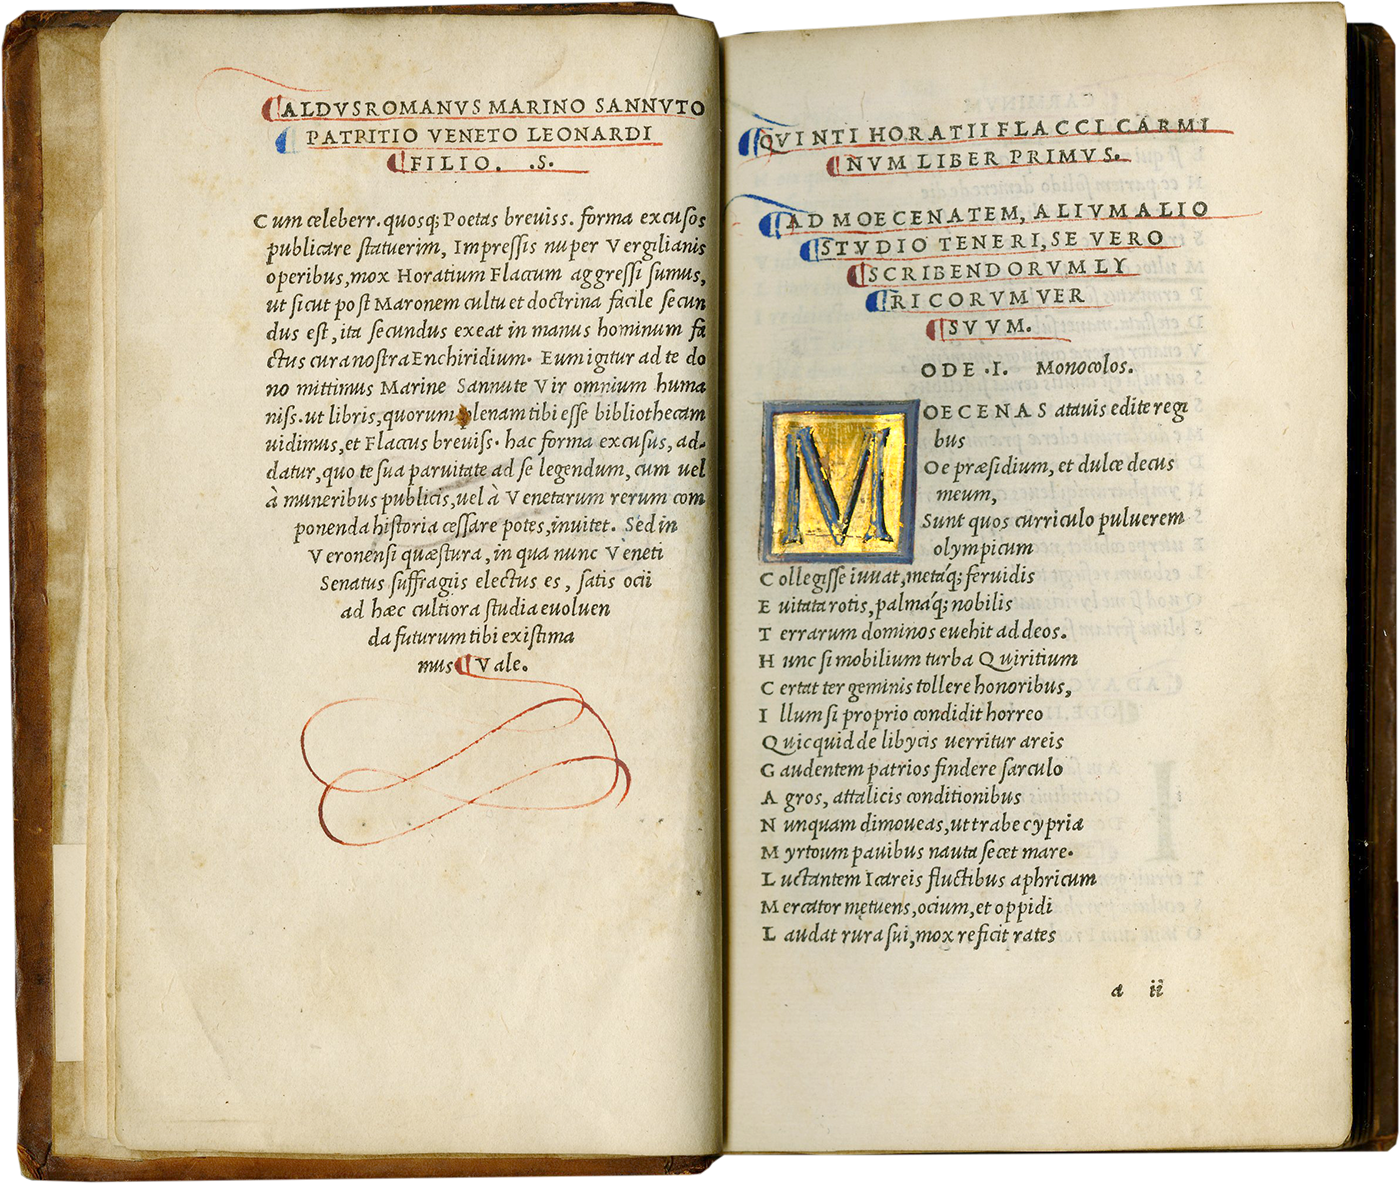 ALDVS ROMANVS MARINO SANNVTO
PATRITIO VENETO LEONARDI
FILIO. .S.
Cum celeberr. quosq; Poetas breuiss. forma excusos
publicare statuerim, Impressis nuper Vergilianis
operibus, mox Horatium Flaccum aggressi sumus,
ut sicut post Maronem cultu et doctrina facile secun
dus est, ita secundus exeat in manus hominum fa
ctus cura nostra Enchiridium. Eum igitur ad te do
no mittimus Marine Sannute Vir omnium huma
niss. ut libris, quorum plenam tibi esse bibliothecam
uidimus, et Flaccus breuiss. hac forma excusus, ad-
datur, quo te sua paruitate ad se legendum, cum uel
à muneribus publicis, uel à Venetarum rerum com
ponenda historia cessare potes, inuitet. Sed in
Veronensi quæstura, in qua nunc Veneti
Senatus suffragiis electus es, satis ocii
ad hæc cultiora studia euoluen
da futurum tibi existima
mus Vale.
QVINTI HORATII FLACCI CARMI
NVM LIBER PRIMVS.
AD MOECENATEM, ALIVM ALIO
STVDIO TENERI, SE VERO
SCRIBENDORVM LY
RICORVM VER
SVVM.
ODE .I. Monocolos.
MOECENAS atauis edite regi
bus
Oe præsidium, et dulce decus
meum,
Sunt quos curriculo puluerem
olympicum
Collegisse iuuat, metáq; feruidis
Euitata rotis, palmáq; nobilis
Terrarum dominos euehit ad deos.
Hunc si mobilium turba Quiritium
Certat ter geminis tollere honoribus,
Illum si proprio condidit horreo
Quicquid de libycis uerritur areis
Gaudentem patrios findere sarculo
Agros, attalicis conditionibus
Nunquam dimoueas, ut trabe cypria
Myrtoum pauibus nauta secet mare.
Luctantem Icareis fluctibus aphricum
Mercator metuens, ocium, et oppidi
Laudat rura sui, mox reficit rates
a ii